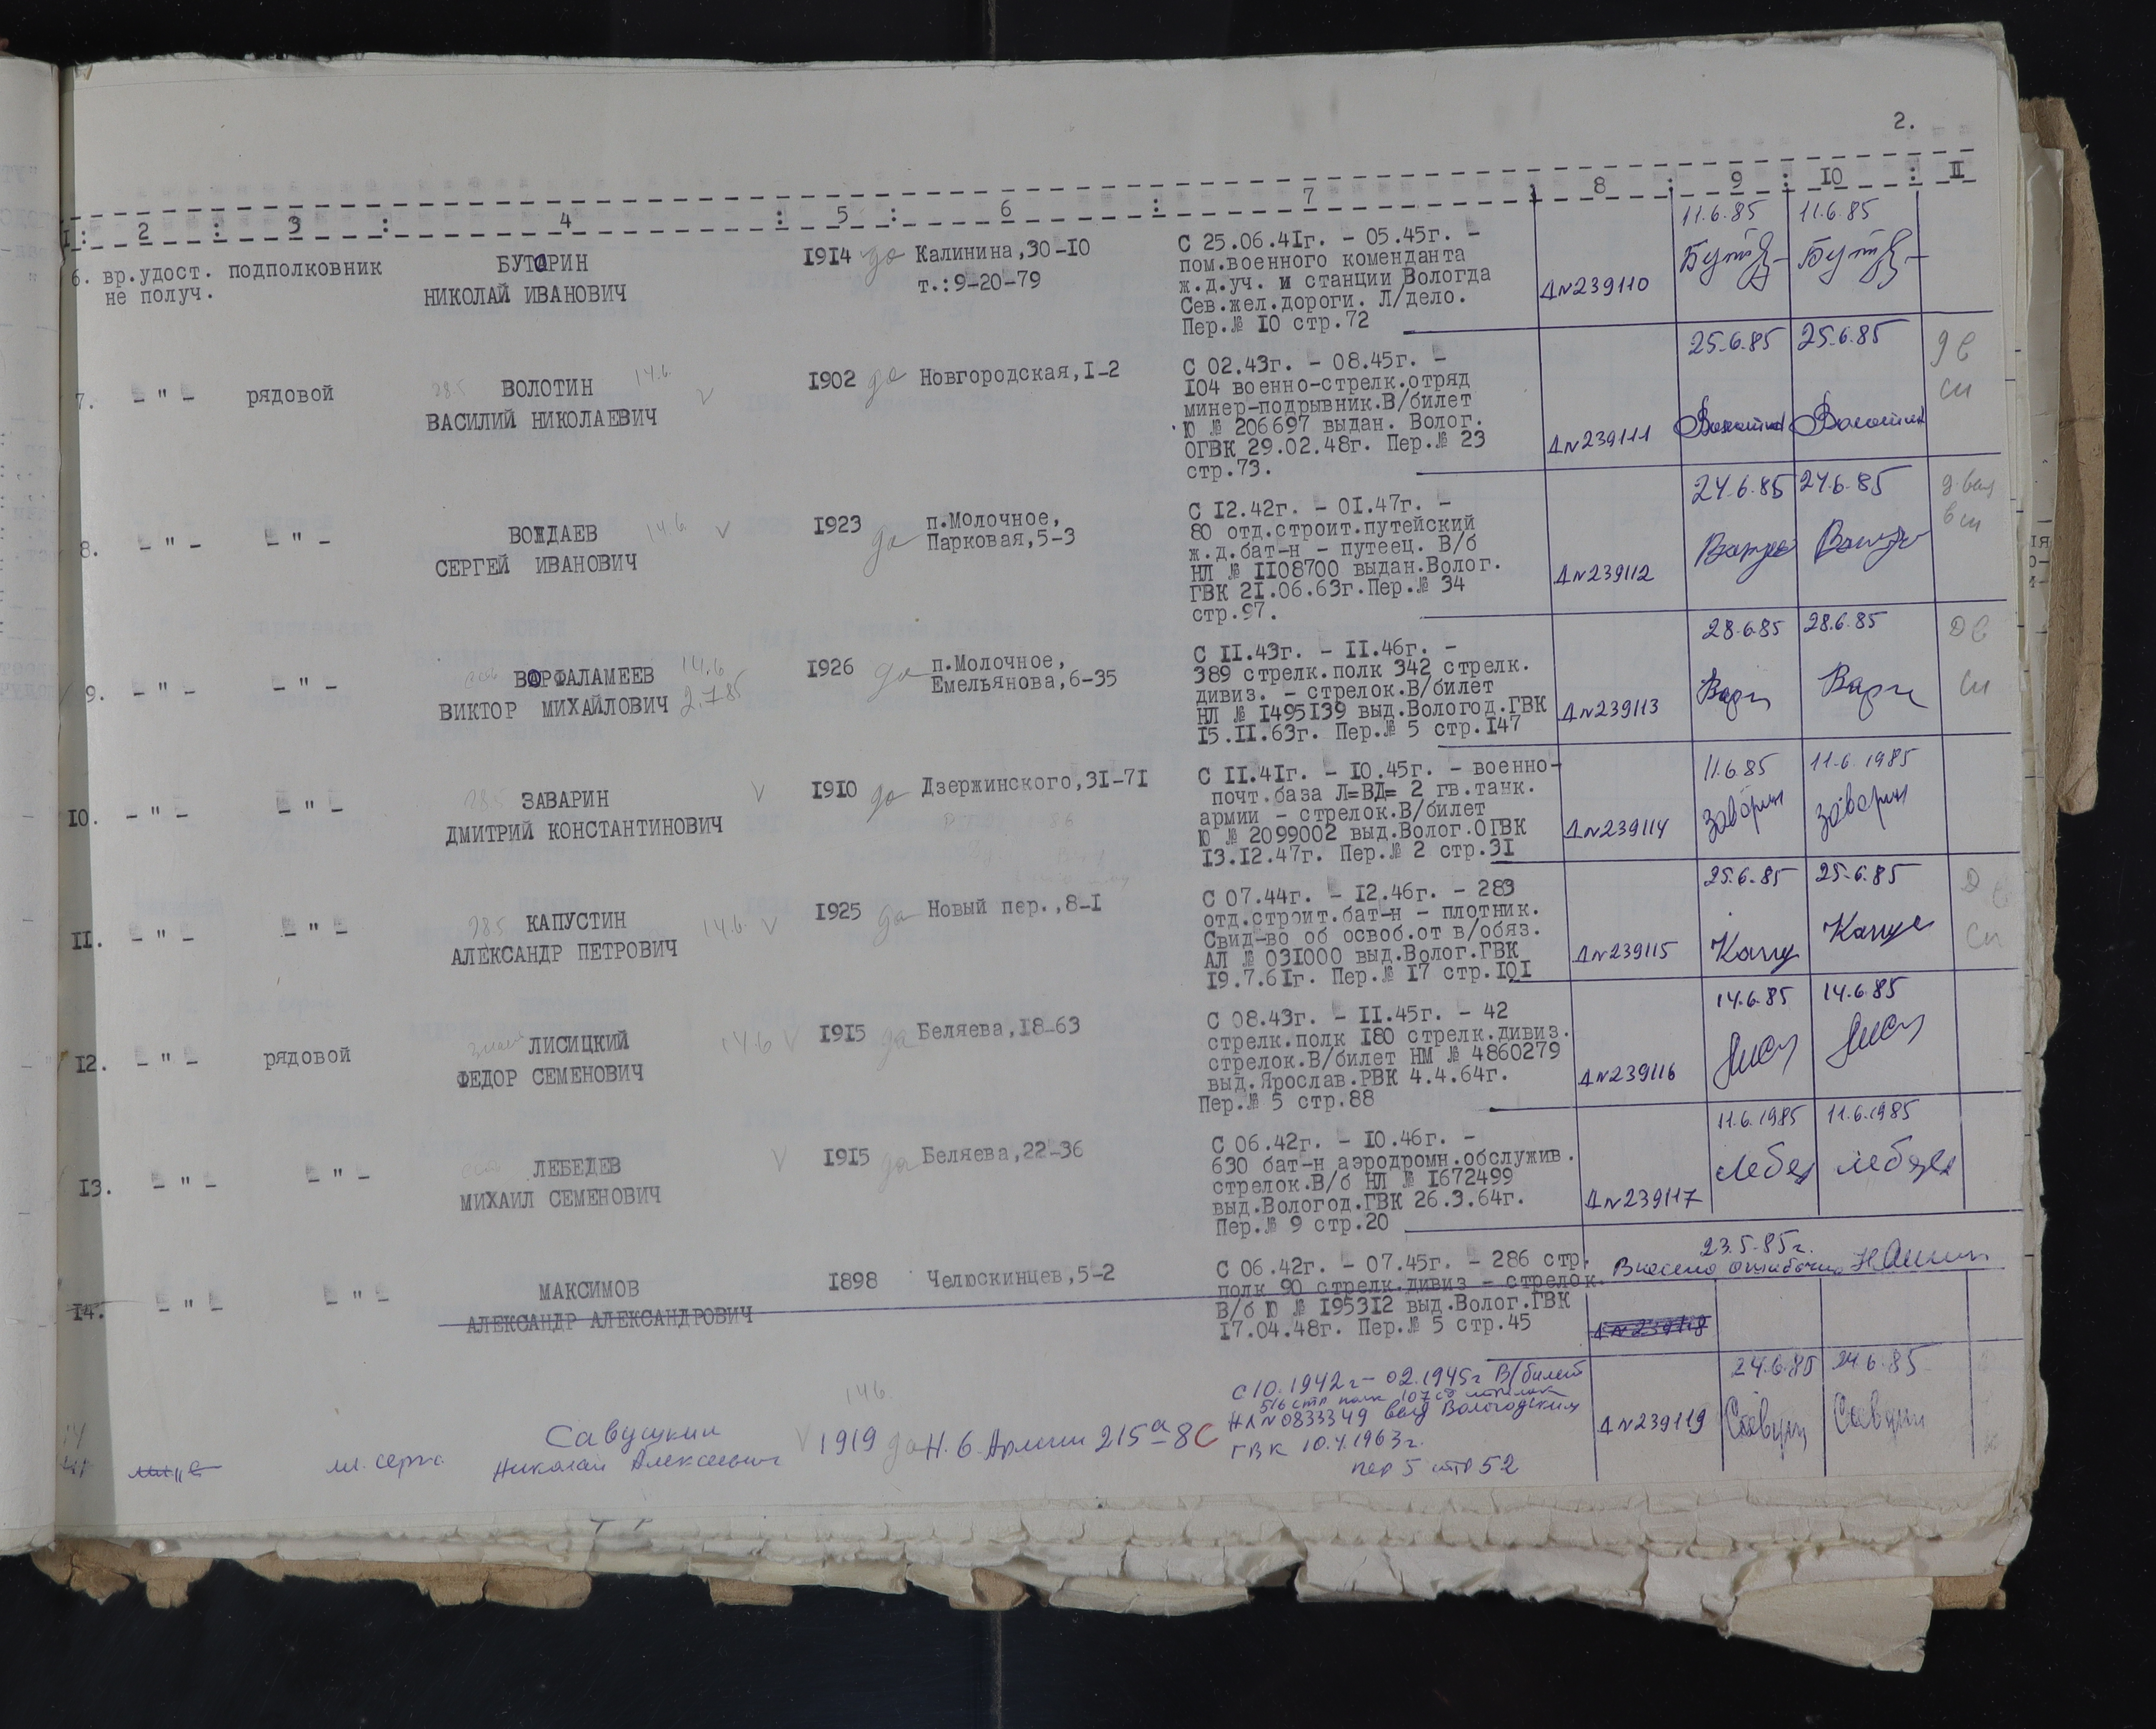 2.
I : 2 : 3 : 4 : 5 : 6 : 7 : 8 : 9 : 10 : II
6. вр.удост. подполковник БУТОРИН 1914 да Калинина,30-10 С 25.06.41г. - 05.45г. - 11.6.85 11.6.85
не получ. НИКОЛАЙ ИВАНОВИЧ т.:9-20-79 пом.военного коменданта
ж.д.уч. и станции Вологда
Сев.жел.дороги. Л/дело. Д№239110
Пер.№ 10 стр.72
7. - " - рядовой ВОЛОТИН 14.6. V 1902 да Новгородская,1-2 С 02.43г. - 08.45г. - 25.6.85 25.6.85
ВАСИЛИЙ НИКОЛАЕВИЧ 104 военно-стрелк.отряд
минер-подрывник.В/билет
Ю № 206697 выдан. Волог.
ОГВК 29.02.48г. Пер.№ 23 Д№239111
стр.73.
8. - " - - " - ВОЖДАЕВ 14.6. V 1923 да п.Молочное, С 12.42г. - 01.47г. - 24.6.85 24.6.85
СЕРГЕЙ ИВАНОВИЧ Парковая,5-3 80 отд.строит.путейский
ж.д.бат-н - путеец. В/б
НЛ № 1108700 выдан.Волог.
ГВК 21.06.63г.Пер.№ 34 Д№239112
стр.97.
9. - " - - " - ВАРФАЛАМЕЕВ 14.6 1926 да п.Молочное, С 11.43г. - 11.46г. - 28.6.85 28.6.85
ВИКТОР МИХАЙЛОВИЧ 2.7.85 Емельянова,6-35 389 стрелк.полк 342 стрелк.
дивиз. - стрелок.В/билет
НЛ № 1495139 выд.Вологод.ГВК Д№239113
15.11.63г. Пер.№ 5 стр.147
10. - " - - " - ЗАВАРИН V 1910 да Дзержинского,31-71 С 11.41г. - 10.45г. - военно- 11.6.85 11.6.1985
ДМИТРИЙ КОНСТАНТИНОВИЧ почт.база Л=ВД= 2 гв.танк.
армии - стрелок.В/билет
Ю № 2099002 выд.Волог.ОГВК Д№239114
13.12.47г. Пер.№ 2 стр.31
11. - " - - " - КАПУСТИН 14.6. V 1925 да Новый пер.,8-1 С 07.44г. - 12.46г. - 283 25.6.85 25.6.85
АЛЕКСАНДР ПЕТРОВИЧ отд.строит.бат-н - плотник.
Свид-во об освоб.от в/обяз.
АЛ № 031000 выд.Волог.ГВК Д№239115
19.7.61г. Пер.№ 17 стр.101
12. - " - рядовой ЛИСИЦКИЙ 14.6 V 1915 да Беляева,18-63 С 08.43г. - 11.45г. - 42 14.6.85 14.6.85
ФЕДОР СЕМЕНОВИЧ стрелк.полк 180 стрелк.дивиз.
стрелок.В/билет НМ № 4860279
выд.Ярослав.РВК 4.4.64г. Д№239116
Пер.№ 5 стр.88
13. - " - - " - ЛЕБЕДЕВ V 1915 да Беляева,22-36 С 06.42г. - 10.46г. - 11.6.1985 11.6.1985
МИХАИЛ СЕМЕНОВИЧ 630 бат-н аэродромн.обслужив.
стрелок.В/б НЛ № 1672499
выд.Вологод.ГВК 26.3.64г. Д№239117
Пер.№ 9 стр.20
14. - " - - " - МАКСИМОВ 1898 Челюскинцев,5-2 С 06.42г. - 07.45г. - 286 стр. 23.5.85г.
АЛЕКСАНДР АЛЕКСАНДРОВИЧ полк 90 стрелк.дивиз - стрелок. Внесено ошибочно
В/б Ю № 195312 выд.Волог.ГВК
17.04.48г. Пер.№ 5 стр.45 Д№239118
14 мл. серж. Савушкин 14.6. V 1919 да Н. 6 Армии 215а-8 С С 10.1942г - 02.1945г В/билет 24.6.85 24.6.85
Николай Алексеевич 516 стр полк 107 сд стрелок
НЛ №0833349 выд Вологодским Д№239119
ГВК 10.4.1963г.
пер 5 стр 52